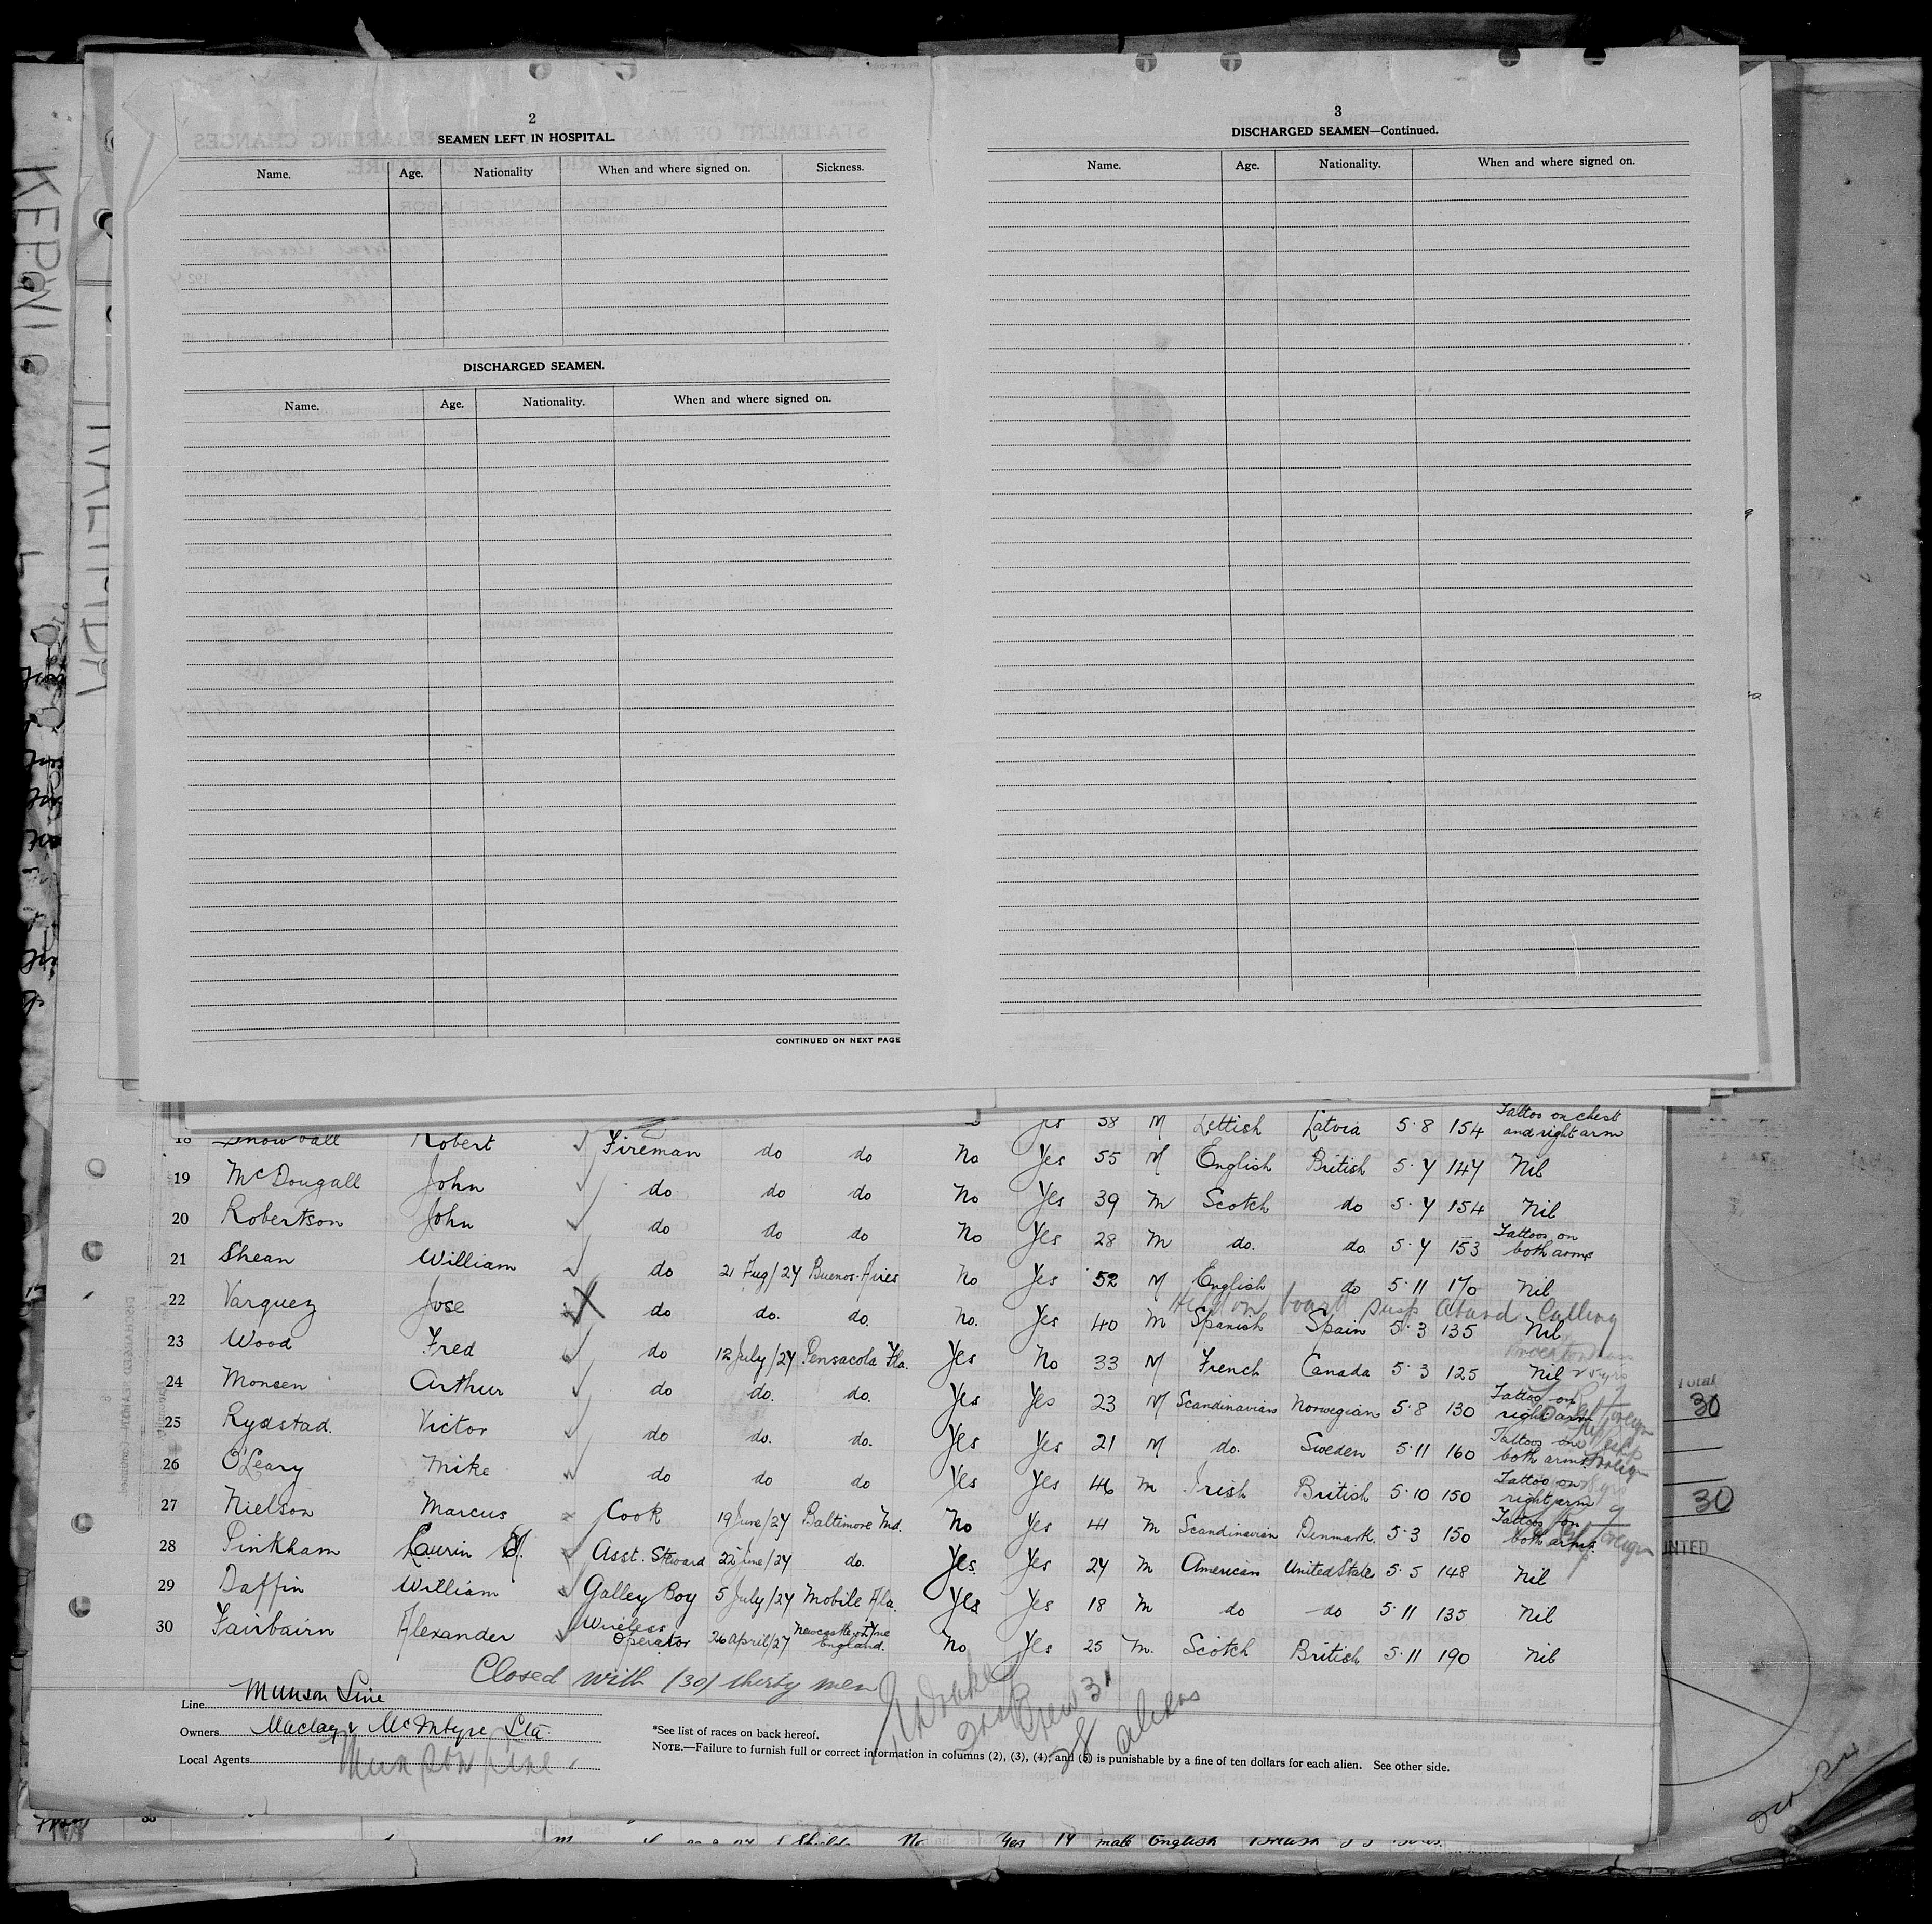 2
SEAMEN LEFT IN HOSPITAL.
Name. Age. Nationality When and where signed on. Sickness.
DISCHARGED SEAMEN.
Name. Age. Nationality. When and where signed on.
CONTINUED ON NEXT PAGE
3
DISCHARGED SEAMEN—Continued.
Name. Age. Nationality. When and where signed on.
Yes 38 M Lettish Latvia 5·8 154 Tattoo on chest and right arm
18 Snowball Robert Fireman do do No Yes 55 M English British 5·7 147 Nil
19 McDougall John do do do No Yes 39 M Scotch do 5·7 154 Nil
20 Robertson John do do do No Yes 28 M do. do 5·7 153 Tattoos on both arms
21 Shean William do 21 Aug/24 Buenos-Aires No Yes 52 M English do 5·11 170 Nil
Held on board
22 Varquez Jose do do. do. No. Yes 40 M Spanish Spain 5·3 135 Nil
23 Wood Fred do 12 July/24 Pensacola Fla. Yes No 33 M French Canada 5·3 125 Nil
24 Monsen Arthur do do. do. Yes Yes 23 M Scandinavian Norwegian 5·8 130 Tattoo on right arm
25 Rydstad. Victor do do. do. Yes Yes 21 M do. Sweden 5·11 160 Tattoos on both arms
26 O'Leary Mike do do do Yes Yes 46 M Irish British 5·10 150 Tattoo on right arm
27 Nielson Marcus Cook 19 June/24 Baltimore Md. No Yes 41 M Scandinavian Denmark. 5·3 150 Tattoos on both arms.
28 Pinkham Laurin Asst. Steward 22 June/24 do. Yes. Yes 24 M American United States 5·5 148 Nil
29 Daffin William Galley Boy 5 July/24 Mobile Ala. Yes Yes 18 M do do 5·11 135 Nil
30 Fairbairn Alexander Wireless Operator 26 April/24 Newcastle on Tyne England. No Yes 25 M. Scotch British 5·11 190 Nil
Closed with (30) thirty men
Crew 31
28 aliens
Line Munson Line
Owners Maclay & McIntyre Ltd.
Local Agents Munson Line
*See list of races on back hereof.
NOTE.—Failure to furnish full or correct information in columns (2), (3), (4), and (5) is punishable by a fine of ten dollars for each alien. See other side.
Total
30
30
No Yes 19 male English British